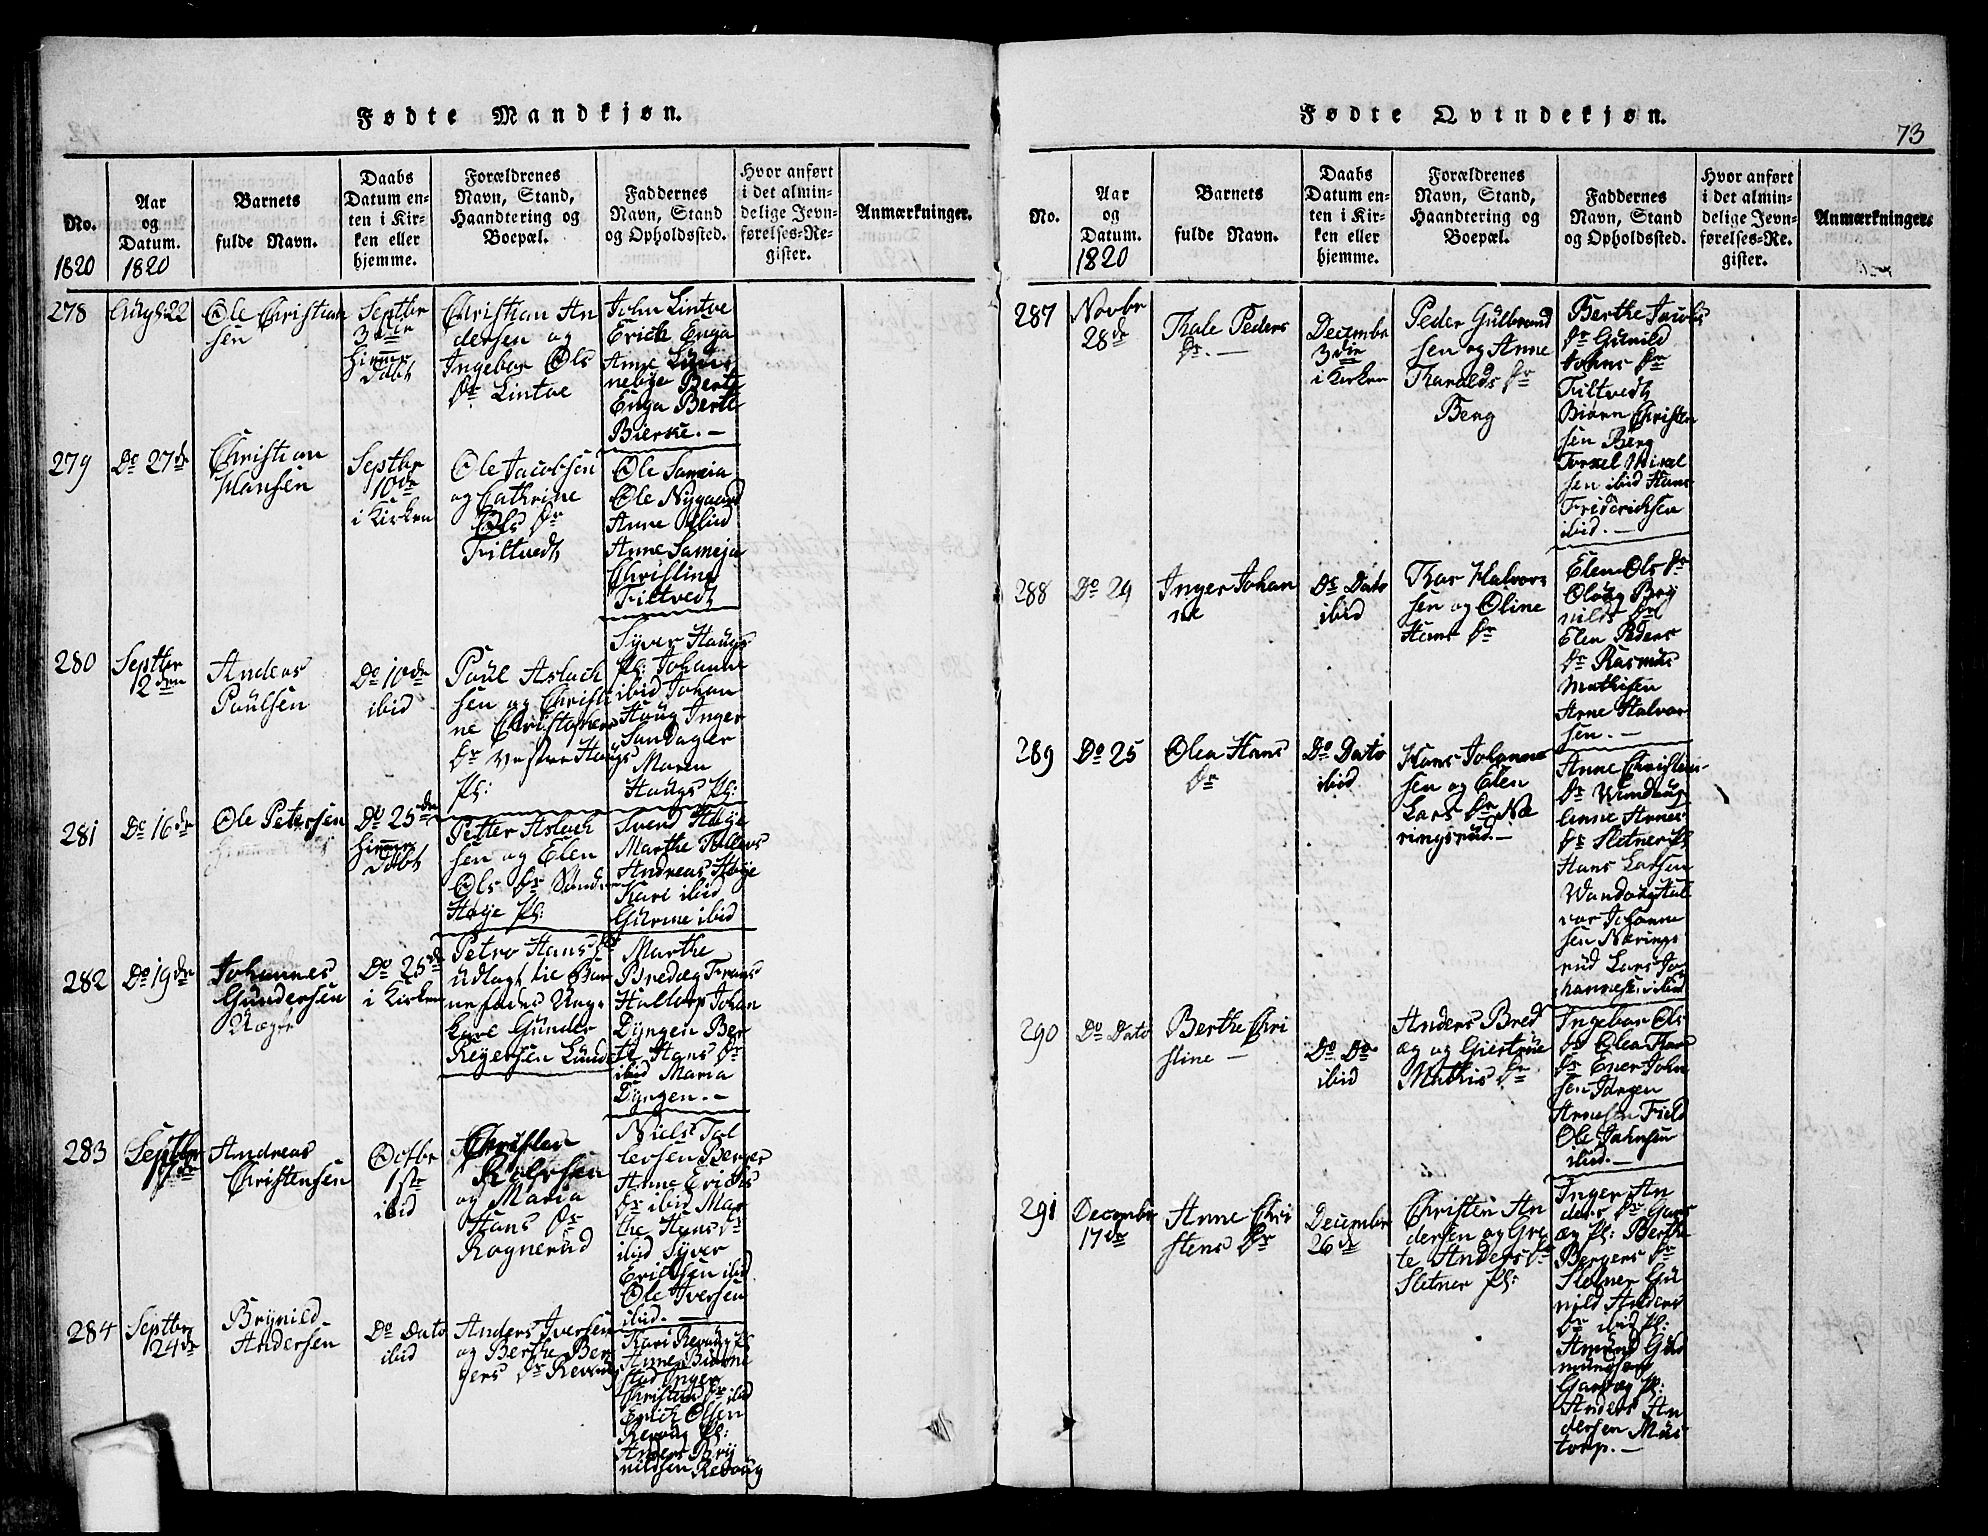 Fødte Mandkjøn.
No.
1820
Aar
og
Datum.
1820
Barnets
fulde Navn.
Daabs
Datum en-
ten i Kir-
ken eller
hjemme.
Forældrenes
Navn, Stand,
Haandtering og
Boepæl.
Faddernes
Navn, Stand
og Opholdssted.
Hvor anført
i det almin-
delige Jevn-
førelses-Re-
gister.
Anmærkninger.
278
Augs 22
Ole Christian
sen
Septbr
3die
Himme
Døbt
Christian An
dersen og
Ingebor Ols
Dr Lintoe
John Lintoe
Erich Enga
Anne
Enga Berte
Bierke. —
279
Do 27de
Christian
Hansen
Septbr
10de
i Kirken
Ole Jacobsen
og Cathrine
Ols Dr
Tiltvedt
Ole Sameia
Ole Nygaard
Anne ibid
Anne Sameja
Christine
Tiltvedt
280
Septbr
2den
Anders
Poulsen
Do 10de
ibid
Poul Aslach
sen og Christi
ne Christophers
Dr Vestre Haugs
Pl:
Syver Haugs
Pl: Johanne
ibid Johan
Haug Inger
Sandager
Maren
Haugs Pl:
281
Do 16de
Ole Petersen
Do 25de
Himme
Døbt
Petter Aslach
sen og Elen
Ols Dr Sønd
Høje Pl:
Svend Høje
Marthe Tollers
Andreas Høje
Kari ibid
Gurine ibid
282
Do 19de
Johannes
Gundersen
Uægte
Do 25de
i Kirken
Petro Hans Dr
udlagt til Bar
nefader Unge
Karl Gunder
Reyersen Lund
Marthe
Bredæg Frans
Hallerp Johan
Dyngen Ber
te Hans Dr
ibid Maria
Dyngen. —
283
Septbr
17de
Andreas
Christensen
Octbr
1ste
ibid
Christen
og Maria
Hans Dr
Rognerud
Niels Tol
lersen Berger
Anne Erichs
Dr ibid Mar
the Hans Dr
ibid Syver
Ericksen ibid
Ole Iversen
ibid. —
284
Septbr
24de
Brynild
Andersen
Do Dato
ibid
Anders Iversen
og Berthe Ber
gers Dr Revoug
Kari Revoug Pl
Anne Biørne
stad Inger
Christens Dr ibid
Erich Olsen
Revoug Pl:
Anders Bry
nildsen Revoug
Fødte Qvindekjøn.
73
No.
Aar
og
Datum.
1820
Barnets
fulde Navn.
Daabs
Datum en-
ten i Kir-
ken eller
hjemme.
Forældrenes
Navn, Stand,
Haandtering og
Boepæl.
Faddernes
Navn, Stand
og Opholdssted.
Hvor anført
i det almin-
delige Jevn-
førelses-Re-
gister.
Anmærkninger.
287
Novbr
28de
Thale Peders
Dr. —
Decembr
3die
i Kirken
Peder Gulbrand
sen og Anne
Haralds Dr
Berg
Berthe Jacobs
Dr Gunild
Johns Dr
Tiltvedt
Biørn Christen
sen Berg
Torkel Mikel
sen ibid Hans
Friderichsen
ibid. —
288
Do 29
Inger Johan
ne
Do Dato
ibid
Thor Halvor
sen og Oline
Hans Dr
Elen Ols Dr
Oloug Bry
nilds Dr
Elen Peders
Dr Rasmus
Mathisen
Arne Halvor
sen. —
289
Do 25
Olea Hans
Dr
Do Dato
ibid
Hans Johanne
sen og Elen
Lars Dr Næ
ringsrud. —
Anne Christens
Dr Wandaug
Anne Arnes
Dr Sletner Pl
Hans Larsen
Wandoug Hal
vor Johanne
sen Nærings
rud Lars Jo
hannesen ibid
290
Do Dato
Berthe Chri
stine —
Do Do
ibid
Anders Bred
æg og Giertrue
Mathis Dr
Ingebor Ols
Dr Olea Hans
Dr Ener John
sen Jørgen
Arnesen Field
Ole Johnsen
ibid. —
291
Decembr
17de
Anne Chri
stens Dr
Decembr
26de
Christen An
dersen og Gre
te Anders Dr
Sletner Pl:
Inger An
ders Dr Gars
æg Pl: Berthe
Bergers Dr
Sletner Gu
nild Anders
Dr ibid Pl:
Amund Gud
mundsen
Garsæg Pl:
Anders An
dersen Mus
torp. —